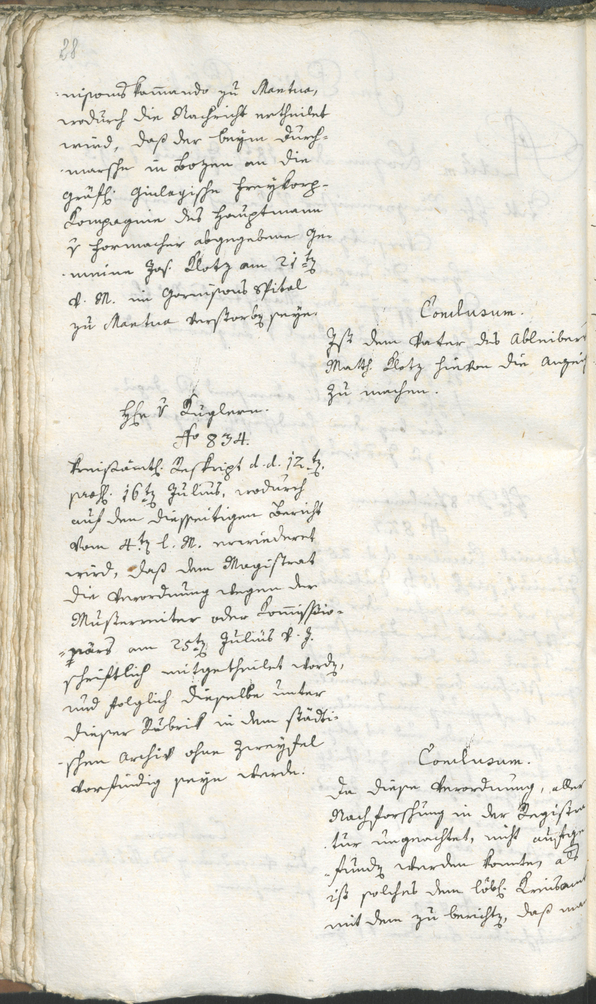 28
-nisons kommando zu Mantua,
wodurch die Nachricht ertheilet
wird, daß der beym Durch-
-marsche in Botzen an die
Gräfl: Giulaysche Freykorp-
Kompagnie des Hauptmann
v abgegebene Ge
-meine Jos. Klotz am 21ten
v. M. im Garnisons Spital
zu Mantua verstorben seye.
Conclusum.
Ist dem Vater des Ableibers
Math. Klotz hievon die Anzeig
zu machen.
Hr v Kuglern.
No 834.
Kreisämtl. Reskript d. d. 12ten,
praes: 16ten Julius, wodurch
auf den diesseitigen Bericht
vom 4ten l. M. erwiederet
wird, daß dem Magistrat
die Verordnung wegen der
Musterreiter oder Commissio-
-närs am 25ten Julius v. J.
schriftlich mitgetheilet worden,
und folglich dieselbe unter
dieser Rubrik in dem städti-
-schen Archiv ohne Zweyfel
vorfindig seyn werde.
Conclusum.
Da diese Verordnung, aller
Nachforschung in der Registra
tur ungeachtet, nicht aufge
-funden werden konnte, als
ist solches dem löbl. Kreisamt
mit dem zu berichten, daß ma